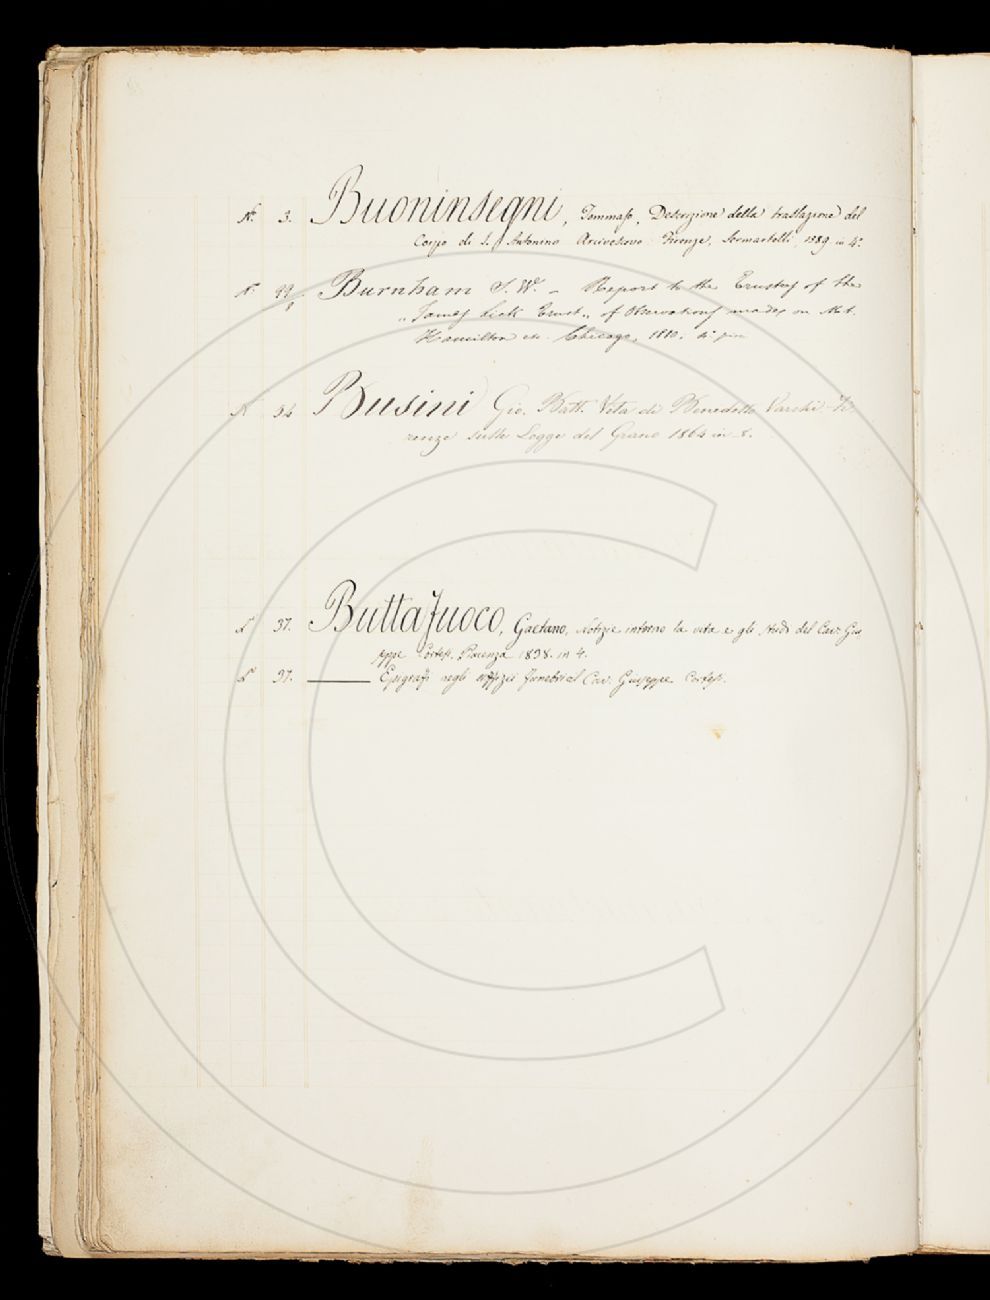 N. 3. Buoninsegni, Tommaso, Descrizione della traslazione del
Corpo di S. Antonino Arcivescovo Firenze, Sermartelli, 1589 in 4.
N. 99 Burnham S. W. - Report to the Trustees of the
"James Lick Trust" of Observations made on Mt.
Hamilton etc. Chicago, 1880. 4.
N. 34 Busini Gio. Batt. Vita di Benedetto Varchi. Fi
renze sulle Logge del Grano 1864 in 8.
37. Buttafuoco, Gaetano, Notizie intorno la vita e gli studi del Cav. Gius
eppe Cortesi. Piacenza 1838. in 4.
37. ——— Epigrafi negli uffizii funebri al Cav. Giuseppe Cortesi.